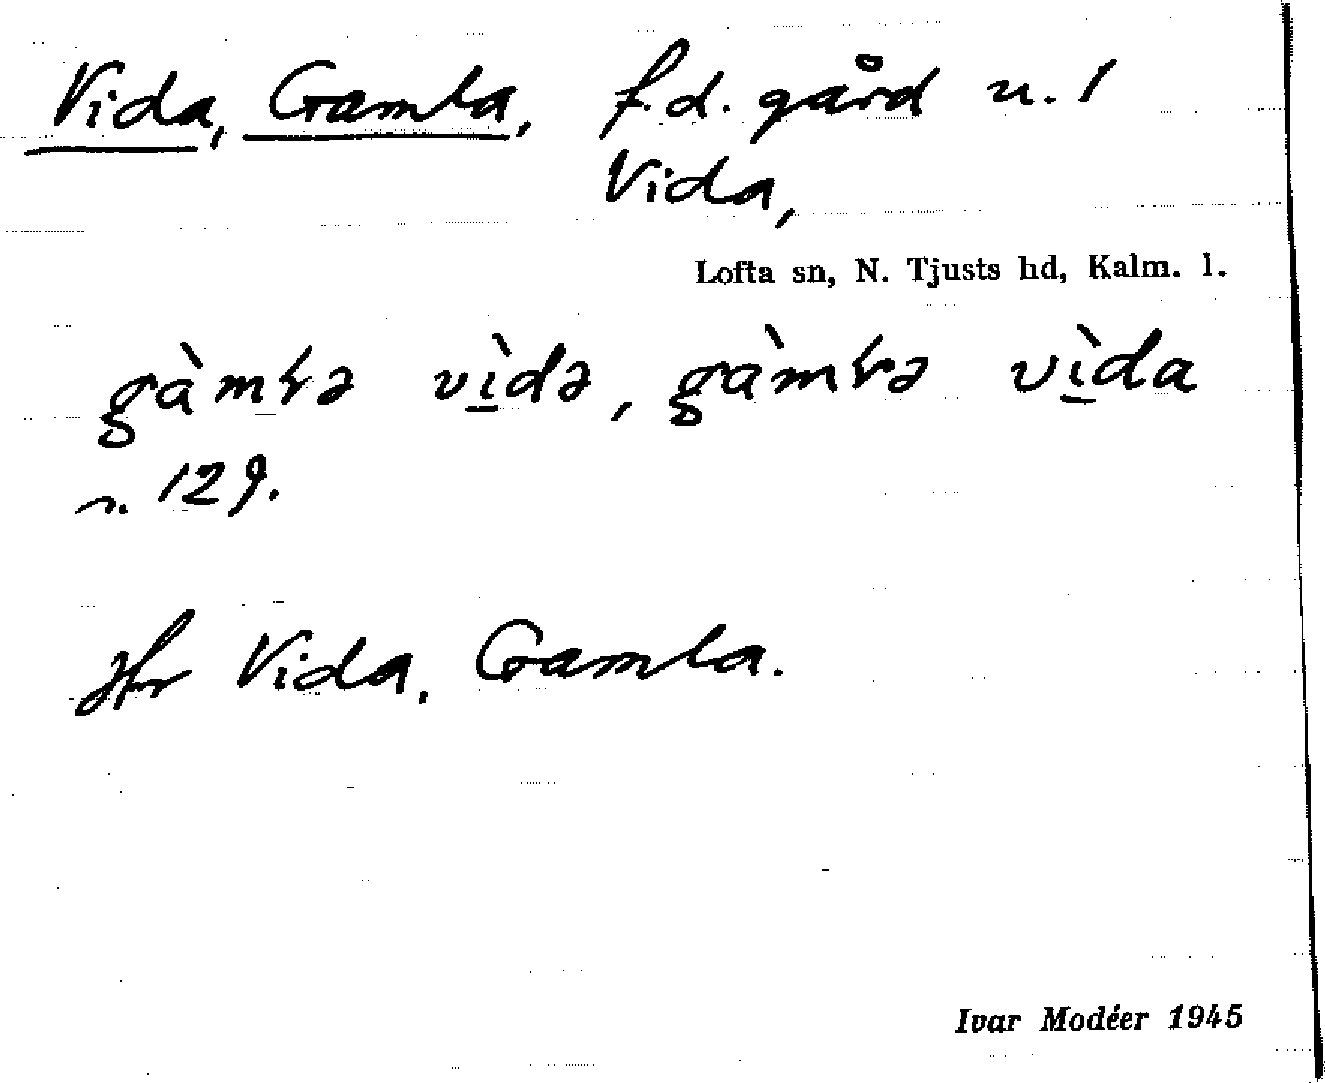 Vida, Gamla, f.d. gård n. 1
Vida,
Lofta sn, N. Tjusts hd, Kalm. l.
gàmɫə vìdə, gàmɫə vìda
n. 129.
Hfr Vida, Gamla.
Ivar Modéer 1945